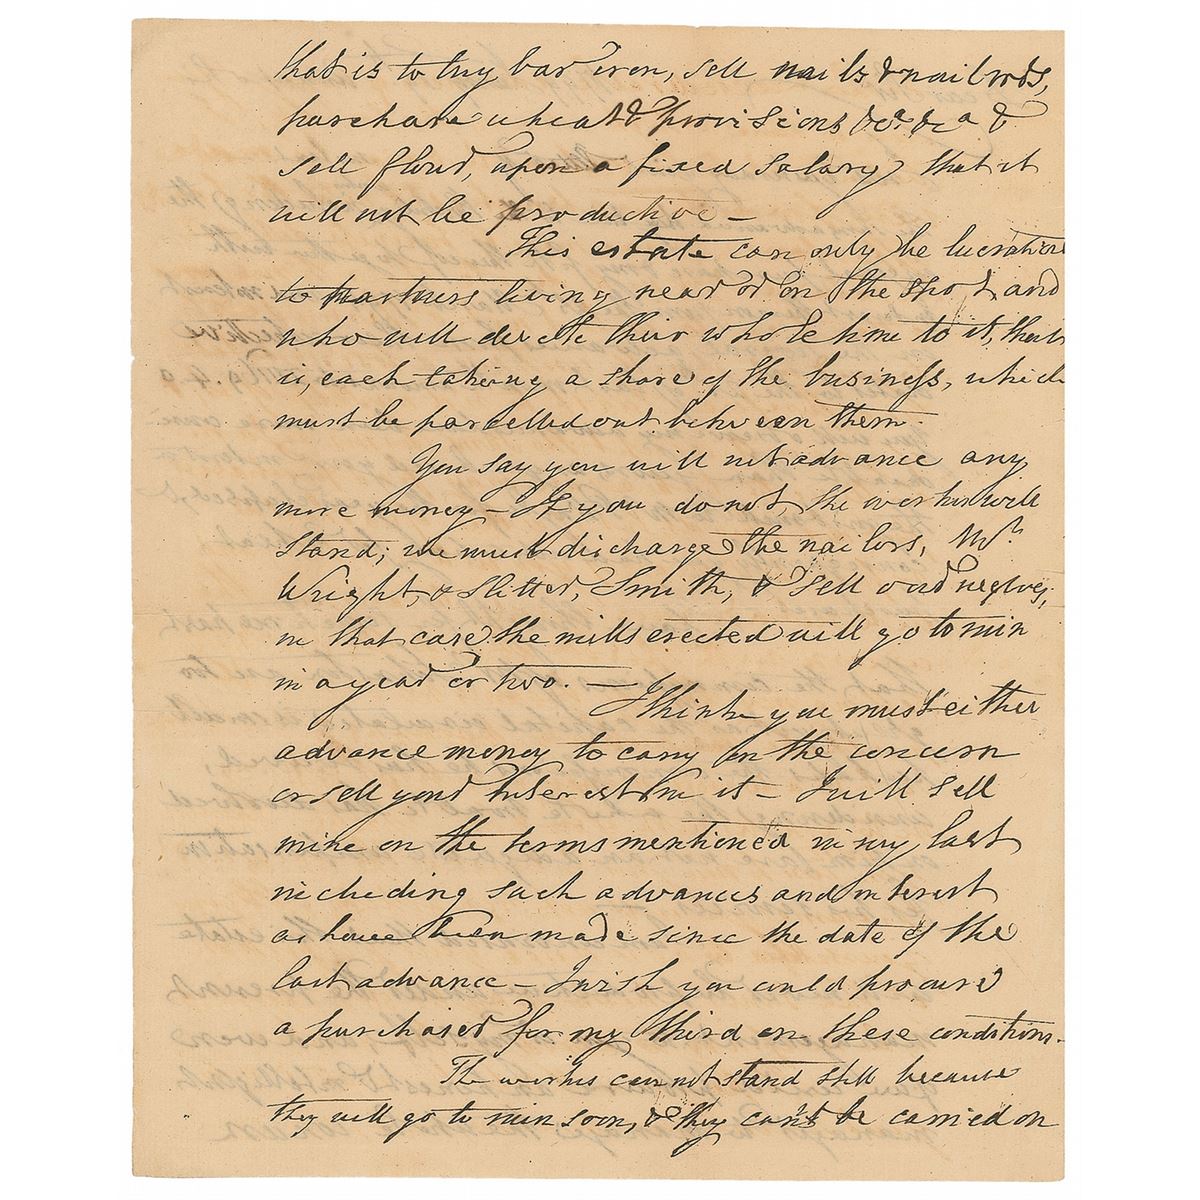 that is to buy bar iron, sell nails & nailrods,
purchase wheat & provisions &ca &ca &
sell flour, upon a fixed salary that it
will not be productive –
This estate can only be lucrative
to partners living near or on the spot and
who will devote their whole time to it, that
is, each taking a share of the business, which
must be parcelled out between them.
You say you will not advance any
more money – If you do not, the works will
stand; we must discharge the nailors, Mr.
Wright, & Slitter, Smith, & sell our negroes;
in that case the mills erected will go to ruin
in a year or two. –
I think you must either
advance money to carry on the concern
or sell your interest in it – I will sell
mine on the terms mentioned in my last
including such advances and interest
as have been made since the date of the
last advance – I wish you could procure
a purchaser for my third on these conditions.
The works cannot stand still because
they will go to ruin soon, & they can't be carried on